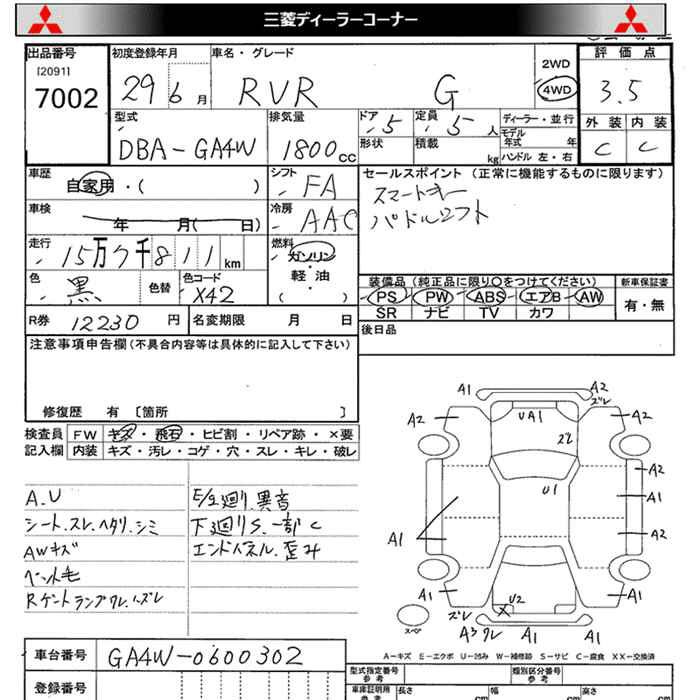 三菱ディーラーコーナー
出品番号 [2091] 7002
初度登録年月 29 6月
車名・グレード RVR G
2WD
4WD
評価点 3.5
外装 内装
C C
型式 DBA-GA4W
排気量 1800cc
ドア 5
定員 5人
形状
積載 kg
ディーラー・並行
モデル年式 年
ハンドル 左・右
車歴 自家用・( )
シフト FA
車検 年 月( 日)
冷房 AAC
走行 15万7千811km
燃料 ガソリン・軽油 ( )
色 黒
色替
色コード X42
セールスポイント (正常に機能するものに限ります)
スマートキー
パドルシフト
装備品 (純正品に限り〇をつけてください)
PS・PW・ABS・エアB・AW
SR ナビ TV カワ
新車保証書 有・無
R券 12230円
名変期限 月 日
後日品
注意事項申告欄 (不具合内容等は具体的に記入して下さい)
修復歴 有 〔箇所 〕
検査員記入欄
FW キズ・飛石・ヒビ割・リペア跡・×要
内装 キズ・汚レ・コゲ・穴・スレ・キレ・破レ
A.U
シート.スレ.ヘタリ.シミ
AWキズ
ペット毛
Rゲートランプワレ.ズレ
E/G廻り.異音
下廻りS.一部C
エンドパネル.歪み
A1 A2
ズレ
A2 UA1 A1
ズレ
A2
U1 A1
A1 A2
A1 U2 A1
ズレ
スペア A3ワレ A1 A1
A-キズ E-エクボ U-凹み W-補修跡 S-サビ C-腐食 XX-交換済
車台番号 GA4W-0600302
登録番号
型式指定番号 参考
類別区分番号 参考
車庫証明用 参考
長さ cm
幅 cm
高さ cm